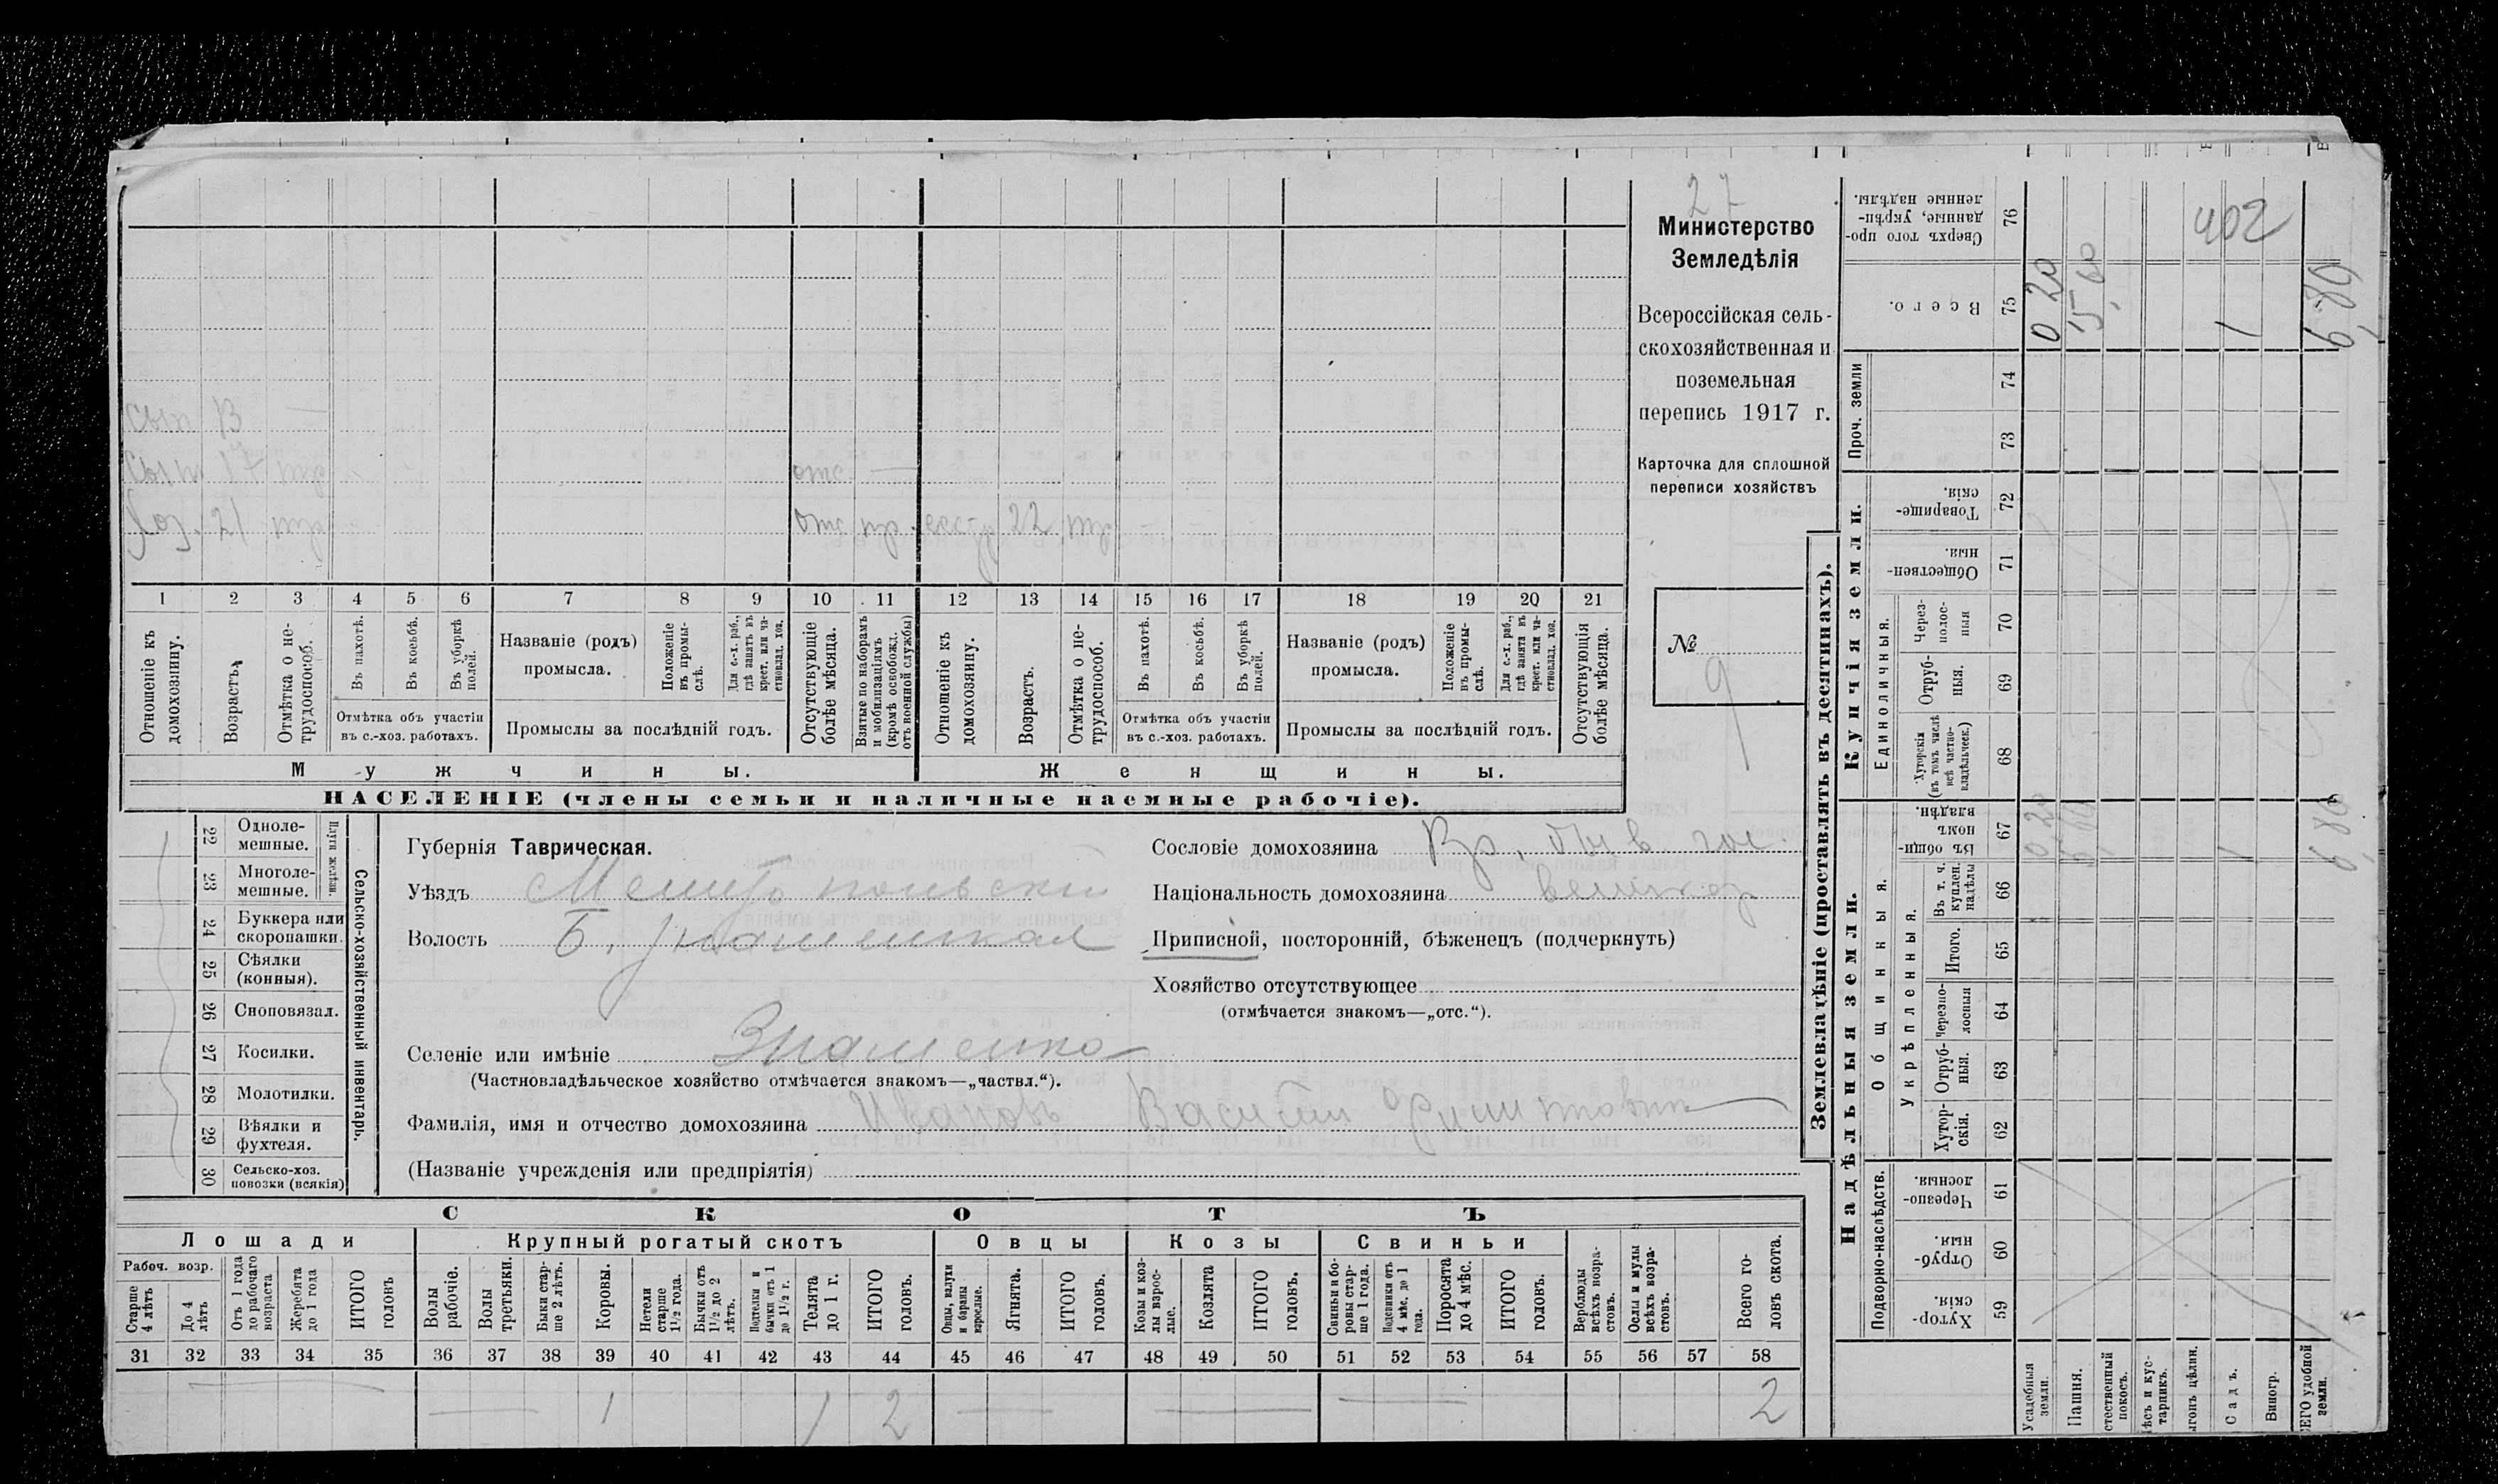 27
402
Министерство
Земледѣлія
Всероссійская сель-
скохозяйственная и
поземельная
перепись 1917 г.
Карточка для сплошной
переписи хозяйствъ
№
9
сын
сын 17
хоз. 21
отс.
отс 22
1 2 3 4 5 6 7 8 9 10 11 12 13 14 15 16 17 18 19 20 21
Отношеніе къ домохозяину.
Возрастъ.
Отмѣтка о не-трудоспособ.
Въ пахотѣ.
Въ косьбѣ.
Въ уборкѣ полей.
Отмѣтка объ участіи
въ с.-хоз. работахъ.
Названіе (родъ)
промысла.
Положеніе въ промы-слѣ.
Для с.-х. раб., гдѣ занятъ въ крест. или ча-стновлад. хоз.
Промыслы за послѣдній годъ.
Отсутствующіе болѣе мѣсяца.
Взятые по наборамъ и мобилизаціямъ (кромѣ освобожд. отъ военной службы)
Отношеніе къ домохозяину.
Возрастъ.
Отмѣтка о не-трудоспособ.
Въ пахотѣ.
Въ косьбѣ.
Въ уборкѣ полей.
Отмѣтка объ участіи
въ с.-хоз. работахъ.
Названіе (родъ)
промысла.
Положеніе въ промы-слѣ.
Для с.-х. раб., гдѣ занята въ крест. или ча-стновлад. хоз.
Промыслы за послѣдній годъ.
Отсутствующія болѣе мѣсяца.
Мужчины.
Женщины.
НАСЕЛЕНІЕ (члены семьи и наличные наемные рабочіе).
22 Одноле-мешные.
23 Многоле-мешные.
Плуги желѣзн.
24 Буккера или скоропашки.
25 Сѣялки (конныя).
26 Сноповязал.
27 Косилки.
28 Молотилки.
29 Вѣялки и фухтеля.
30 Сельско-хоз. повозки (всякія)
Сельско-хозяйственный инвентарь.
Губернія Таврическая.
Уѣздъ Мелитопольски
Волость Б. Знаменская
Селеніе или имѣніе Знаменка
(Частновладѣльческое хозяйство отмѣчается знакомъ—„частвл.“).
Фамилія, имя и отчество домохозяина Ивановъ Василій
(Названіе учрежденія или предпріятія)
Сословіе домохозяина Кр. быв. гос.
Національность домохозяина великор
Приписной, посторонній, бѣженецъ (подчеркнуть)
Хозяйство отсутствующее
(отмѣчается знакомъ—„отс.“).
СКОТЪ
Лошади
Крупный рогатый скотъ
Овцы
Козы
Свиньи
Рабоч. возр.
Старше 4 лѣтъ
До 4 лѣтъ
Отъ 1 года до рабочаго возраста
Жеребята до 1 года
ИТОГО головъ
Волы рабочіе.
Волы третьяки.
Быки стар-ше 2 лѣтъ.
Коровы.
Нетели старше 1½ года.
Бычки отъ 1½ до 2 лѣтъ.
Подтелки и бычки отъ 1 до 1½ г.
Телята до 1 г.
ИТОГО головъ.
Овцы, валухи и бараны взрослые.
Ягнята.
ИТОГО головъ.
Козы и коз-лы взрос-лые.
Козлята
ИТОГО головъ.
Свиньи и бо-ровы стар-ше 1 года.
Подсвинки отъ 4 мѣс. до 1 года.
Поросята до 4 мѣс.
ИТОГО головъ.
Верблюды всѣхъ возра-стовъ.
Ослы и мулы всѣхъ возра-стовъ.
Всего го-ловъ скота.
31 32 33 34 35 36 37 38 39 40 41 42 43 44 45 46 47 48 49 50 51 52 53 54 55 56 57 58
1 1 2 2
Землевладѣніе (проставлять въ десятинахъ).
Надѣльныя земли.
Купчія земли.
Проч. земли
Подворно-наслѣдств.
Общинныя.
Укрѣпленныя.
Единоличныя.
Сверхъ того про-данные, укрѣп-ленные надѣлы. 76
Всего. 75
74
73
Товарище-скія. 72
Обществен-ныя. 71
Через-полос-ныя 70
Отруб-ныя. 69
Хуторскія (въ томъ числѣ всѣ частно-владѣльческ.) 68
Въ общин-номъ владѣн. 67
Въ т. ч. куплен. надѣлы 66
Итого. 65
Черезпо-лосныя 64
Отруб-ныя. 63
Хутор-скія. 62
Черезпо-лосныя. 61
Отруб-ныя. 60
Хутор-скія. 59
Усадебныя земли.
Пашня.
стественный покосъ.
ѣсъ и кус-тарникъ.
ыгонъ цѣлин.
Садъ.
Виногр.
ЕГО удобной земли.
0 20
5,60
1
6,80
0 20
1
6,80